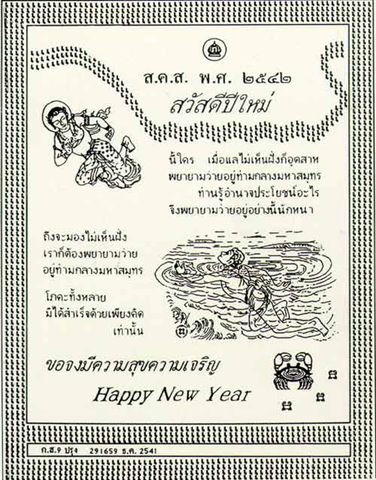 ส.ค.ส. พ.ศ. ๒๕๔๒
สวัสดีปีใหม่
นี้ใคร เมื่อแลไม่เห็นฝั่งก็อุตสาห
พยายามว่ายอยู่ท่ามกลางมหาสมุทร
ท่านรู้อำนาจประโยชน์อะไร
จึงพยายามว่ายอยู่อย่างนี้นักหนา
ถึงจะมองไม่เห็นฝั่ง
เราก็ต้องพยายามว่าย
อยู่ท่ามกลางมหาสมุทร
โภคะทั้งหลาย
มิได้สำเร็จด้วยเพียงคิด
เท่านั้น
ขอจงมีความสุขความเจริญ
Happy New Year
ก.ส.9 ปรุง 291659 ธ.ค. 2541